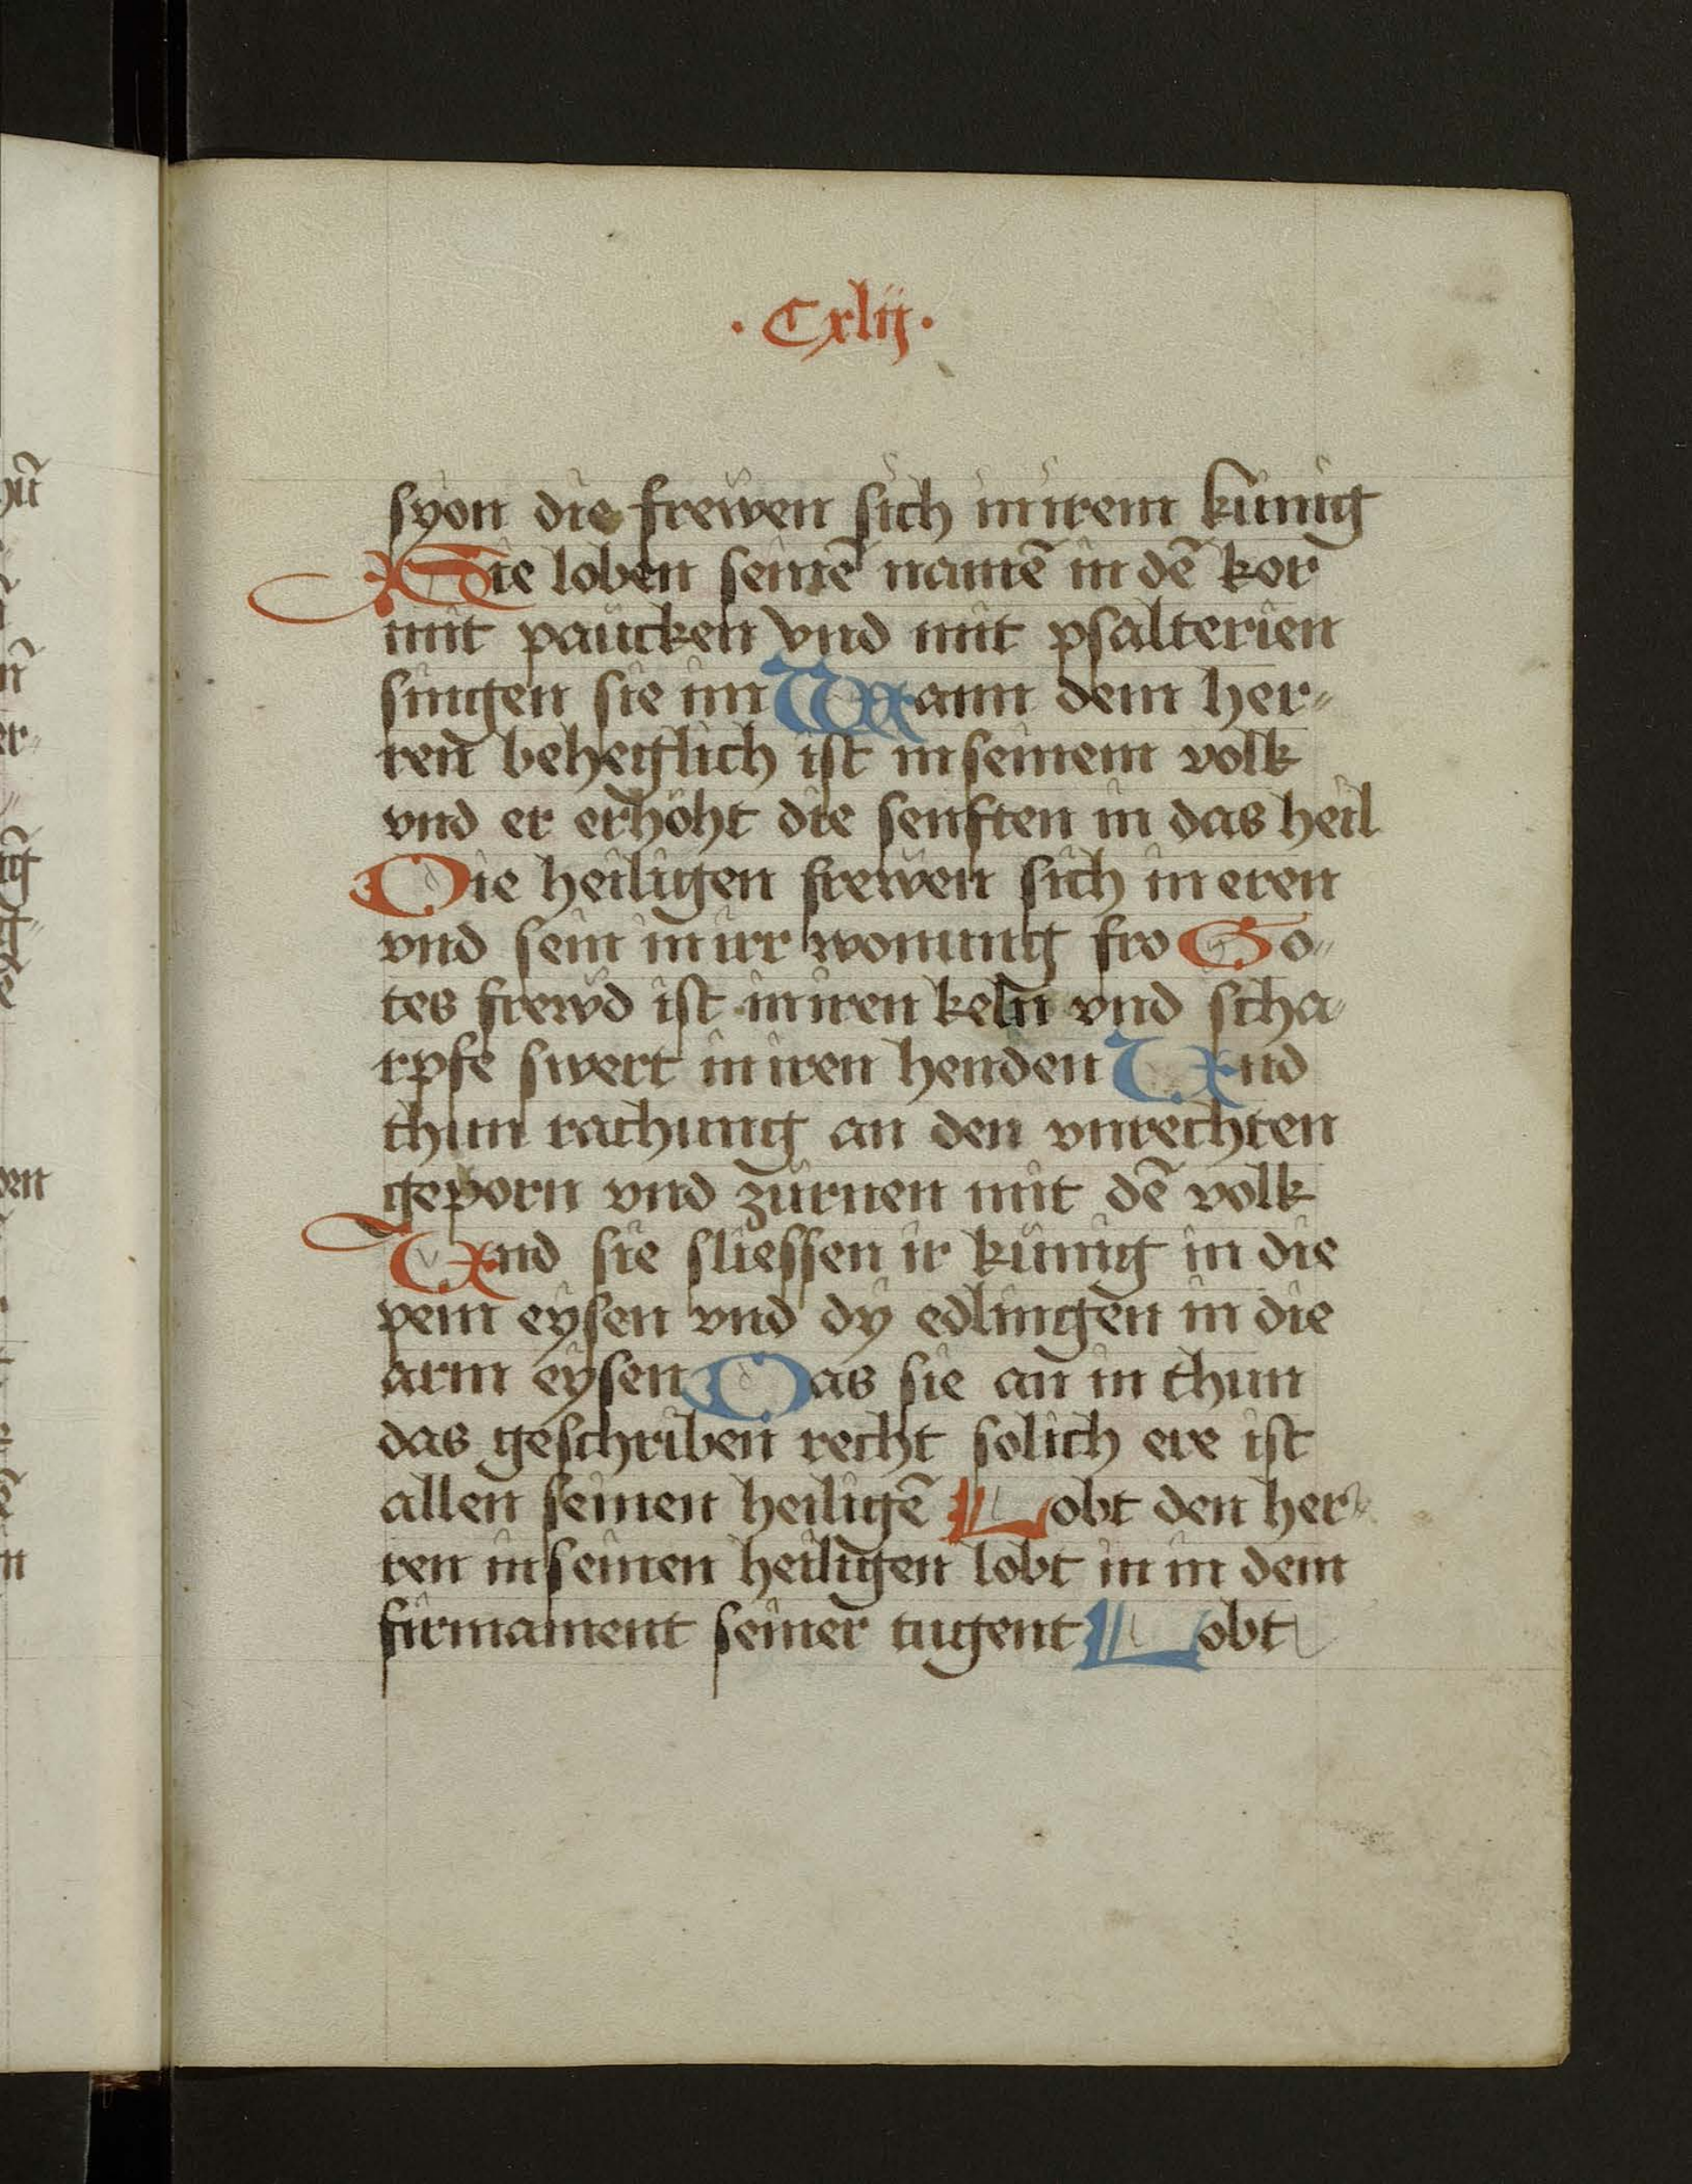 · Cxlij ·
syon die frewen sich in irem künig
Sie loben seinē namē in dē kor
mit paucken vnd mit psalterien
singen sie im Wann dem her⸗
ren beheglich ist in seinem volk
vnd er erhöht die senften in das heil
Die heiligen frewen sich in eren
vnd sein in irr wonung fro Go⸗
tes frewd ist in iren keln vnd scha⸗
rpfe swert in iren henden Vnd
thun rachung an den vnrechten
geporn vnd zürnen mit dē volk
Vnd sie sliessen ir künig in die
pein eysen vnd dy edlingen in die
arm eysen Das sie an in thun
das geschriben recht solich ere ist
allen seinen heiligē Lobt den her⸗
ren in seinen heiligen lobt in in dem
firmament seiner tugent Lobt